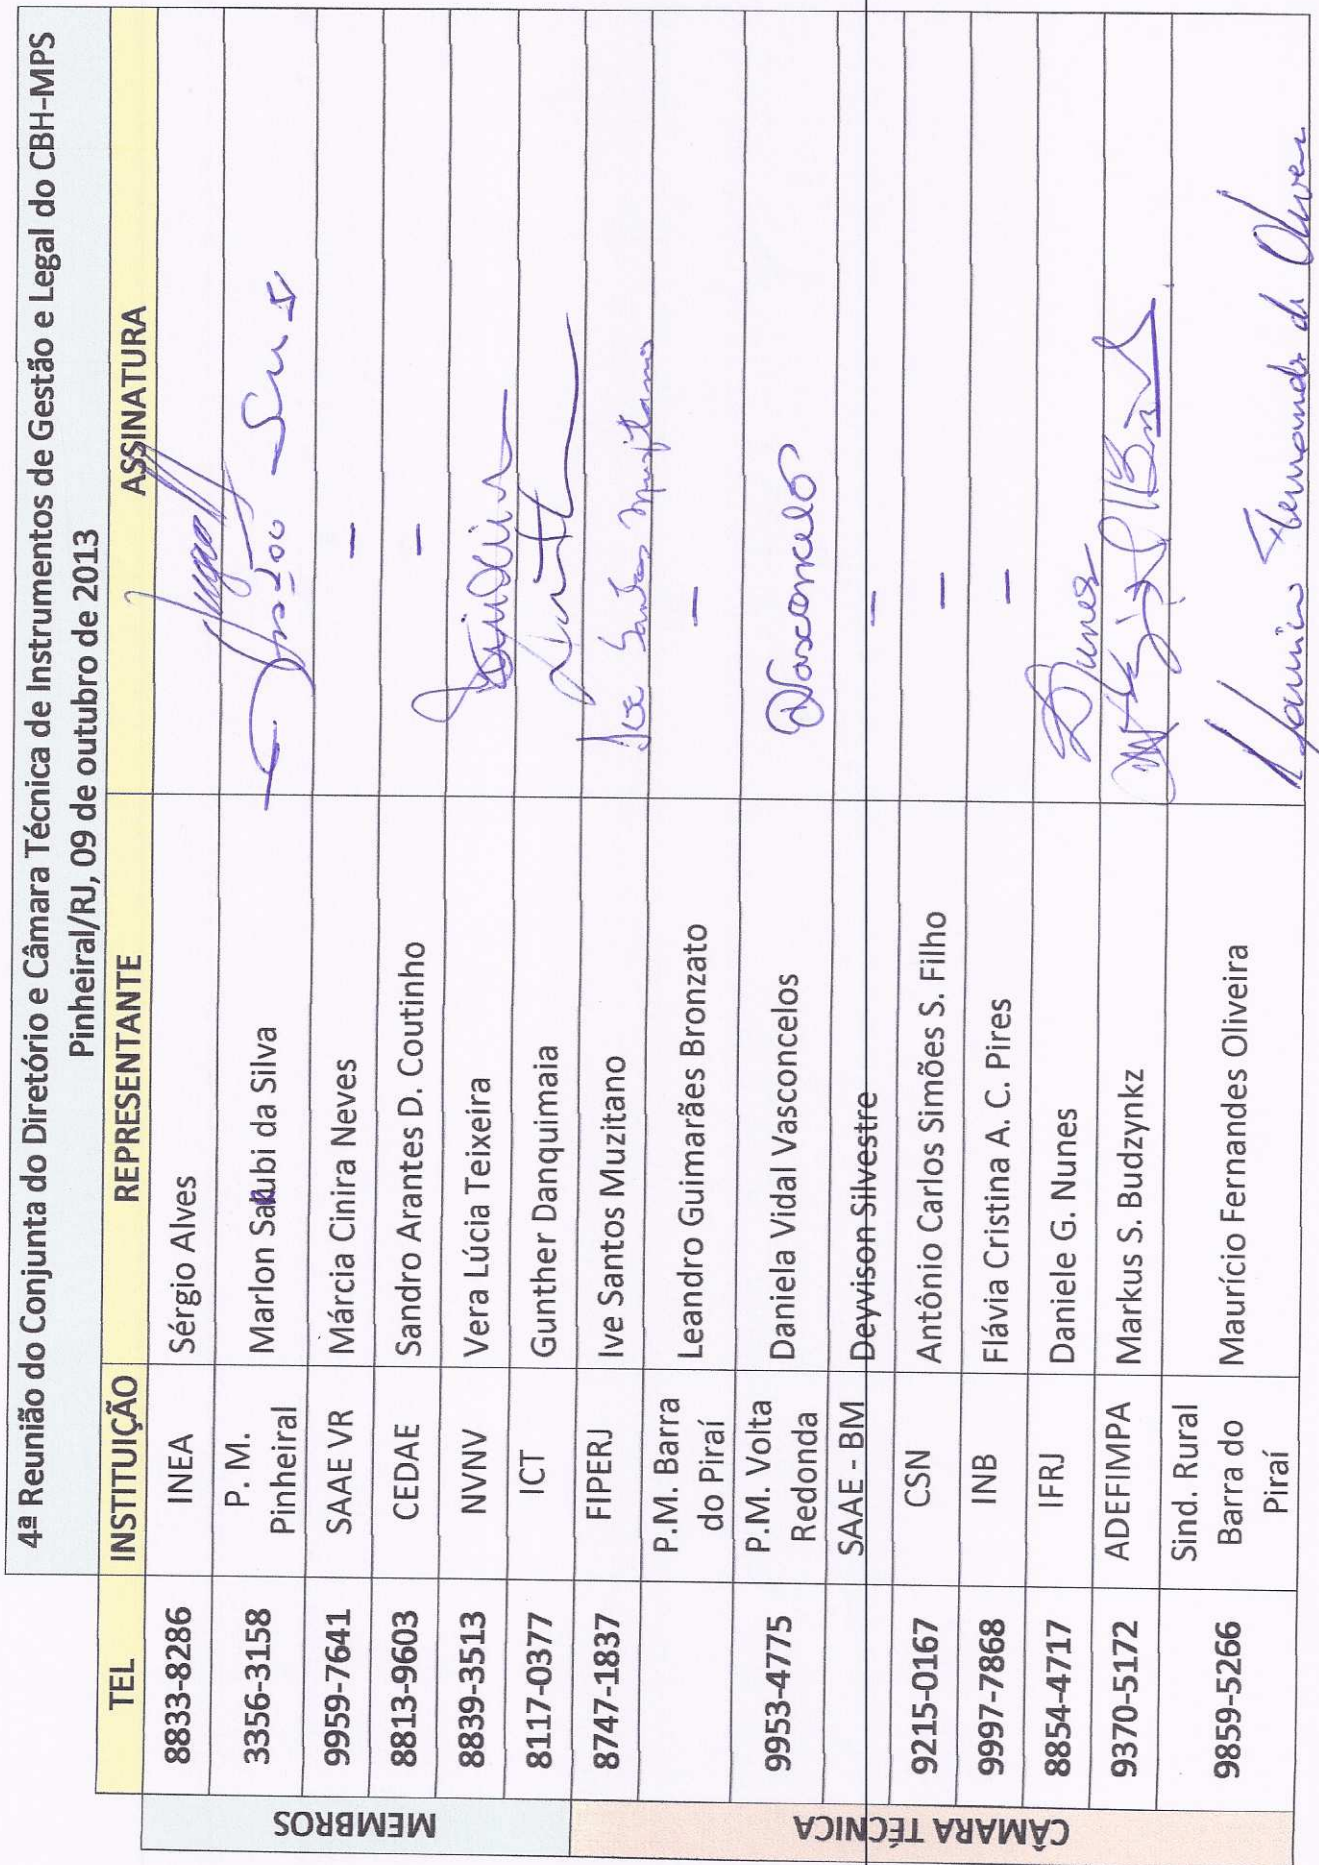 4ª Reunião do Conjunta do Diretório e Câmara Técnica de Instrumentos de Gestão e Legal do CBH-MPS
Pinheiral/RJ, 09 de outubro de 2013
TEL INSTITUIÇÃO REPRESENTANTE ASSINATURA
MEMBROS
8833-8286 INEA Sérgio Alves
3356-3158 P. M. Pinheiral Marlon Sakubi da Silva
9959-7641 SAAE VR Márcia Cinira Neves -
8813-9603 CEDAE Sandro Arantes D. Coutinho -
8839-3513 NVNV Vera Lúcia Teixeira
8117-0377 ICT Gunther Danquimaia
CÂMARA TÉCNICA
8747-1837 FIPERJ Ive Santos Muzitano Ive Santos Muzitano
P.M. Barra do Piraí Leandro Guimarães Bronzato -
9953-4775 P.M. Volta Redonda Daniela Vidal Vasconcelos DVasconcelos
SAAE - BM Deyvison Silvestre -
9215-0167 CSN Antônio Carlos Simões S. Filho -
9997-7868 INB Flávia Cristina A. C. Pires -
8854-4717 IFRJ Daniele G. Nunes DNunes
9370-5172 ADEFIMPA Markus S. Budzynkz
9859-5266 Sind. Rural Barra do Piraí Maurício Fernandes Oliveira Maurício Fernandes de Oliveira